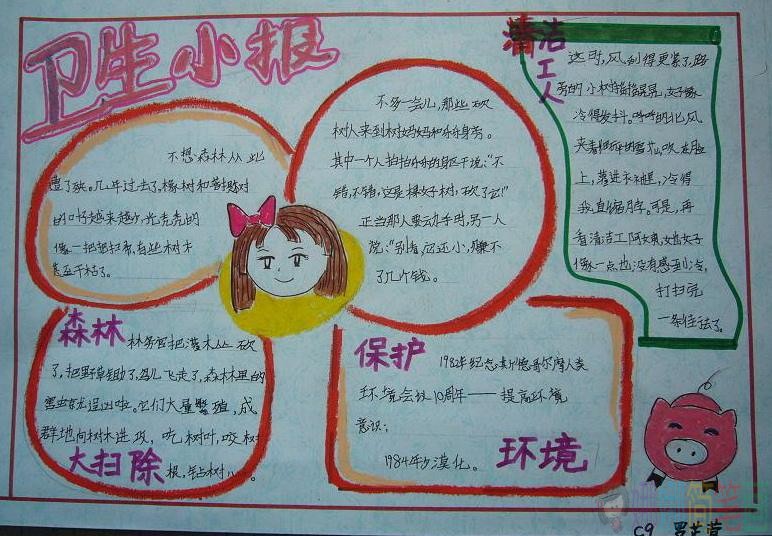 卫生小报
不想森林从此
遭了殃。几年过去了,橡树和
的叶子越来越少,光秃秃的
像一把把扫帚,有些树木
甚至干枯了。
不多一会儿,那些砍
树人来到树妈妈和乐乐身旁。
其中一个人拍拍乐乐的身区干说:“不
错,不错,这是棵女子树,砍了它!”
正当那人要云力手时,另一人
说:“别看,它还小,赚不
了几个钱。
清洁工人
这时,风刮得更紧了,路
旁的小树摇摇晃晃,女子像
冷得发抖。呼呼的北风
夹着的雪花,吹在脸
上,落进衣袖里,冷得
我直缩脖子。可是,再
看清洁工阿姨,她女子
像一点也没有感至小冷,
打扫完
一条街走了。
森林
林务官把灌木丛砍
了,把野草锄了,鸟儿飞走了,森林里的
害虫就逞凶啦。它们大量繁殖,成
群地向树木进攻,吃树叶,咬树
根,钻树心。
大扫除
保护
1982年纪念斯德哥尔摩人类
环境会议10周年——提高环境
意识;
1984年沙漠化。
环境
C9